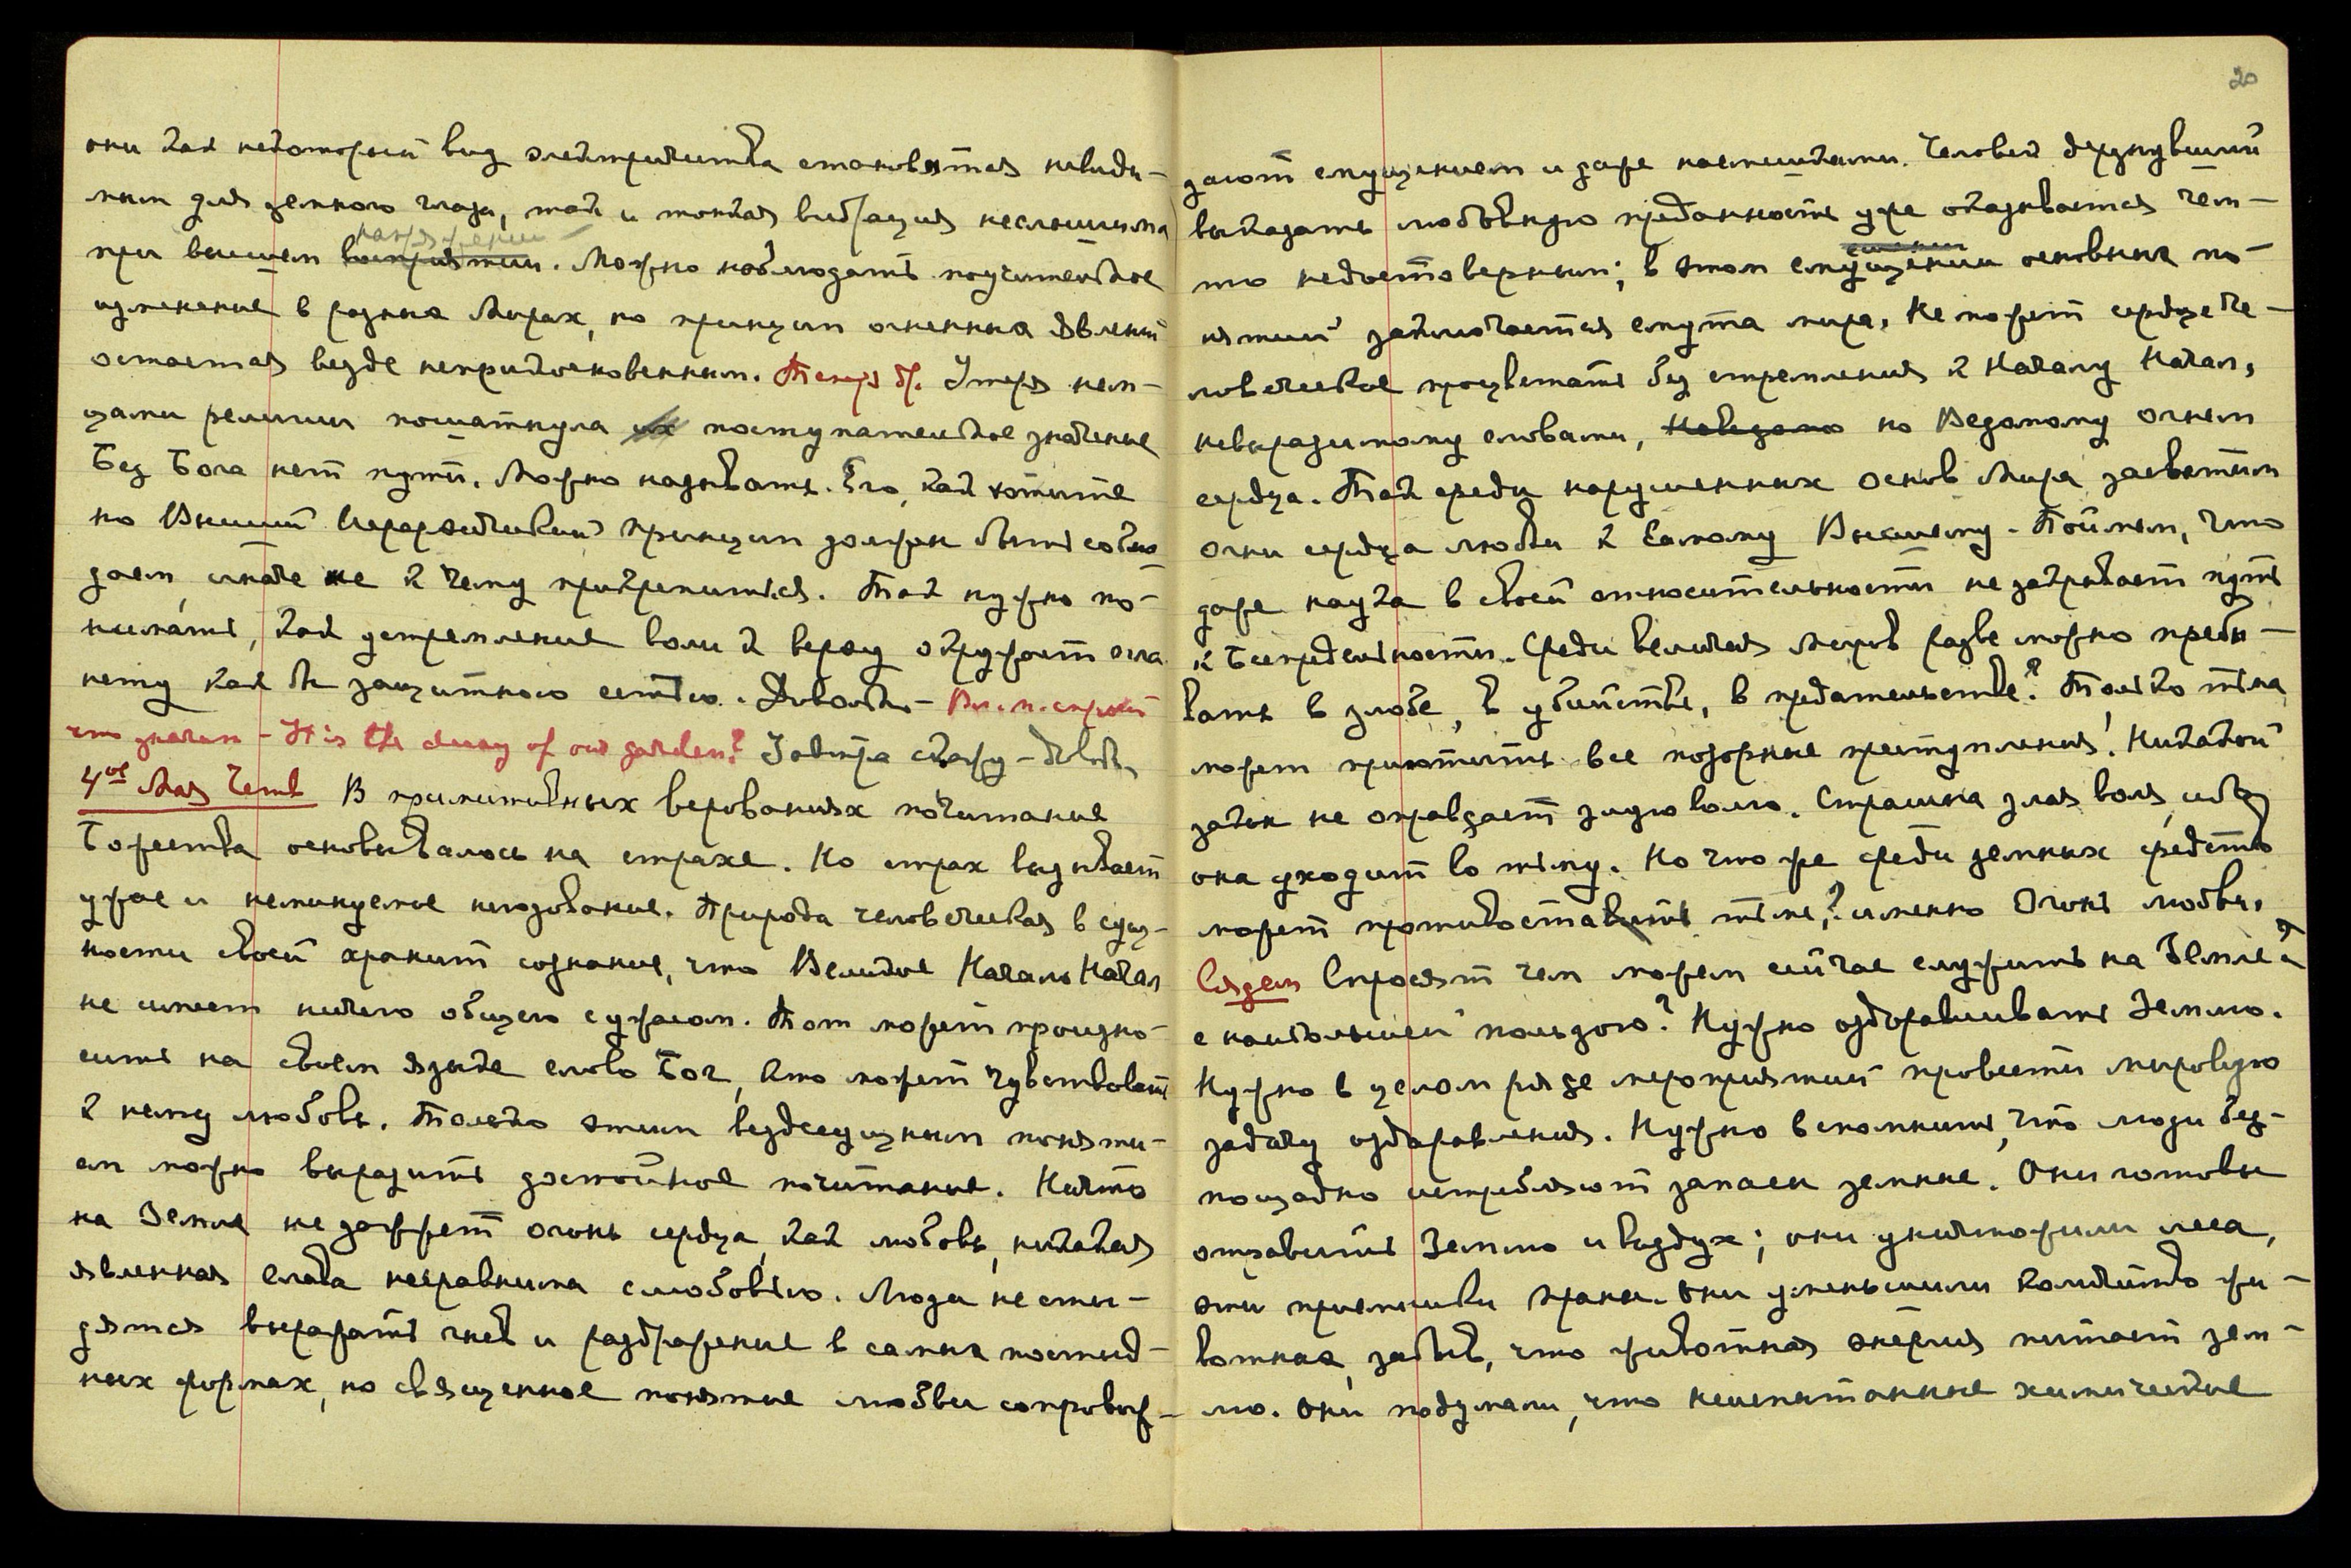 они как некоторый вид электричества становятся невиди-
мым для земного глаза, так и тонкая вибрация неслышима
напряжении
при высшем восприятии. Можно наблюдать поучительное
изменение в разных Мирах, но принцип огненных явлений
остается везде неприкосновенным. Теперь др. Утеря кем-
цами религии пошатнула их поступательное значение
Без Бога нет пути. Можно называть Его, как хотите
но Высший Иерархический принцип должен быть соблю-
даем, иначе не к чему прикрепиться. Так нужно по-
нимать, как устремление воли к верху окружает пла
нету как бы защитною сетью. Довольно – Вл. м. спросит
что значит – It is the decay of our garden? Завтра скажу – довол.
4ое Мая Четв В примитивных верованиях почитание
Божества основывалось на страхе. Но страх вызывает
ужас и неминуемое негодование. Природа человеческая в сущ-
ности своей хранит сознание, что Великое Начало Начал
не имеет ничего общего с ужасом. Тот может произно-
сить на своем языке слово Бог, кто может чувствовать
к нему любовь. Только этим вездесущным поняти-
ем можно выразить достойное почитание. Ничто
на Земле не зажжет огонь сердца, как любовь, никакая
явленная слава несравнима с любовью. Люди не сты-
дятся выражать гнев и раздражение в самых постыд-
ных формах, но священное понятие любви сопровож-
20
дают смущением и даже насмешками. Человек дерзнувший
выказать любовную преданность уже оказывается чем-
то недостоверным; в этом смущении основных по-
нятий заключается смута мира. Не может сердце че-
ловеческое процветать без стремления к Началу Начал,
невыразимому словами, но Ведомому огнем
сердца. Так среди нарушенных основ Мира засветим
огни сердца любви к Самому Высшему. Поймем, что
даже наука в своей относительности не закрывает путь
к Беспредельности. Среди величия миров разве можно пребы-
вать в злобе, в убийстве, в предательстве? Только тьма
может приютить все позорные преступления! Никакой
закон не оправдает злую волю. Страшна злая воля, ибо
она уходит во тьму. Но что же среди земных средств
может противоставить тьме? именно Огонь любви.
Сядем Спросят чем можем сейчас служить на Земле и
с наибольшей пользою? Нужно оздоравливать Землю.
Нужно в целом ряде мероприятий провести мировую
задачу оздоравления. Нужно вспомнить, что люди бес-
пощадно истребляют запасы земные. Они готовы
отравить Землю и воздух; они уничтожили леса,
эти приемники праны. Они уменьшили количество жи-
вотных, забыв, что животная энергия питает зем-
лю. Они подумали, что неиспытанные химические